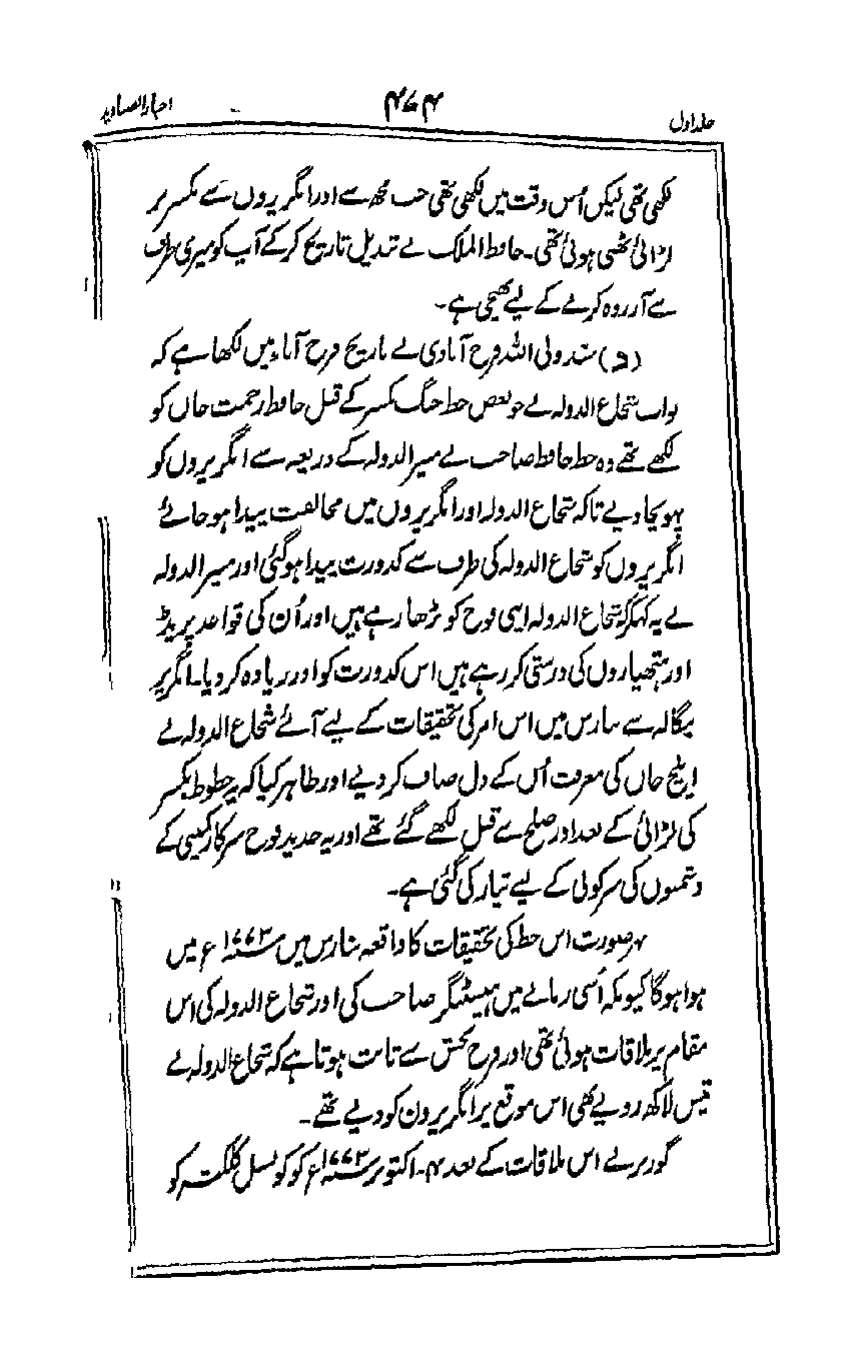 جلد اول ۴۷۴ اخبار الصنادید
لکھی تھی لیکن اُس وقت میں لکھی تھی جب مجھ سے اور انگریزوں سے بکسر پر
لڑائی ٹھنی ہوئی تھی۔ حافظ الملک نے تبدیل تاریخ کرکے آپ کو میری طرف
سے آزردہ کرنے کے لیے بھیجی ہے۔
سید ولی اللہ فرخ آبادی نے تاریخ فرخ آباد میں لکھا ہے کہ
نواب شجاع الدولہ نے جو بعض خط جنگ بکسر کے قبل حافظ رحمت خاں کو
لکھے تھے وہ خط حافظ صاحب نے منیر الدولہ کے ذریعہ سے انگریزوں کو
پہونچا دیے تاکہ شجاع الدولہ اور انگریزوں میں مخالفت پیدا ہو جائے
انگریزوں کو شجاع الدولہ کی طرف سے کدورت پیدا ہو گئی اور منیر الدولہ
نے یہ کہکر کہ شجاع الدولہ اپنی فوج کو بڑھا رہے ہیں اور اُن کی قواعد پریڈ
اور ہتھیاروں کی درستی کر رہے ہیں اس کدورت کو اور زیادہ کر دیا۔ انگریز
بنگالہ سے بنارس میں اس امر کی تحقیقات کے لیے آئے شجاع الدولہ نے
ایلچ خاں کی معرفت اُن کے دل صاف کر دیے اور ظاہر کیا کہ یہ خطوط بکسر
کی لڑائی کے بعد اور صلح سے قبل لکھے گئے تھے اور یہ جدید فوج سرکار کمپنی کے
دشمنوں کی سرکوبی کے لیے تیار کی گئی ہے۔
بہرصورت اس خط کی تحقیقات کا واقعہ بنارس میں سنہ ۱۷۷۳ ع میں
ہوا ہوگا کیونکہ اُسی زمانے میں ہیسٹنگز صاحب کی اور شجاع الدولہ کی اس
مقام پر ملاقات ہوئی تھی اور فرح بخش سے ثابت ہوتا ہے کہ شجاع الدولہ نے
تیس لاکھ روپے بھی اس موقع پر انگریزون کو دیے تھے۔
گورنر نے اس ملاقات کے بعد ۴۔ اکتوبر سنہ ۱۷۷۳ ع کو کونسل کلکتہ کو